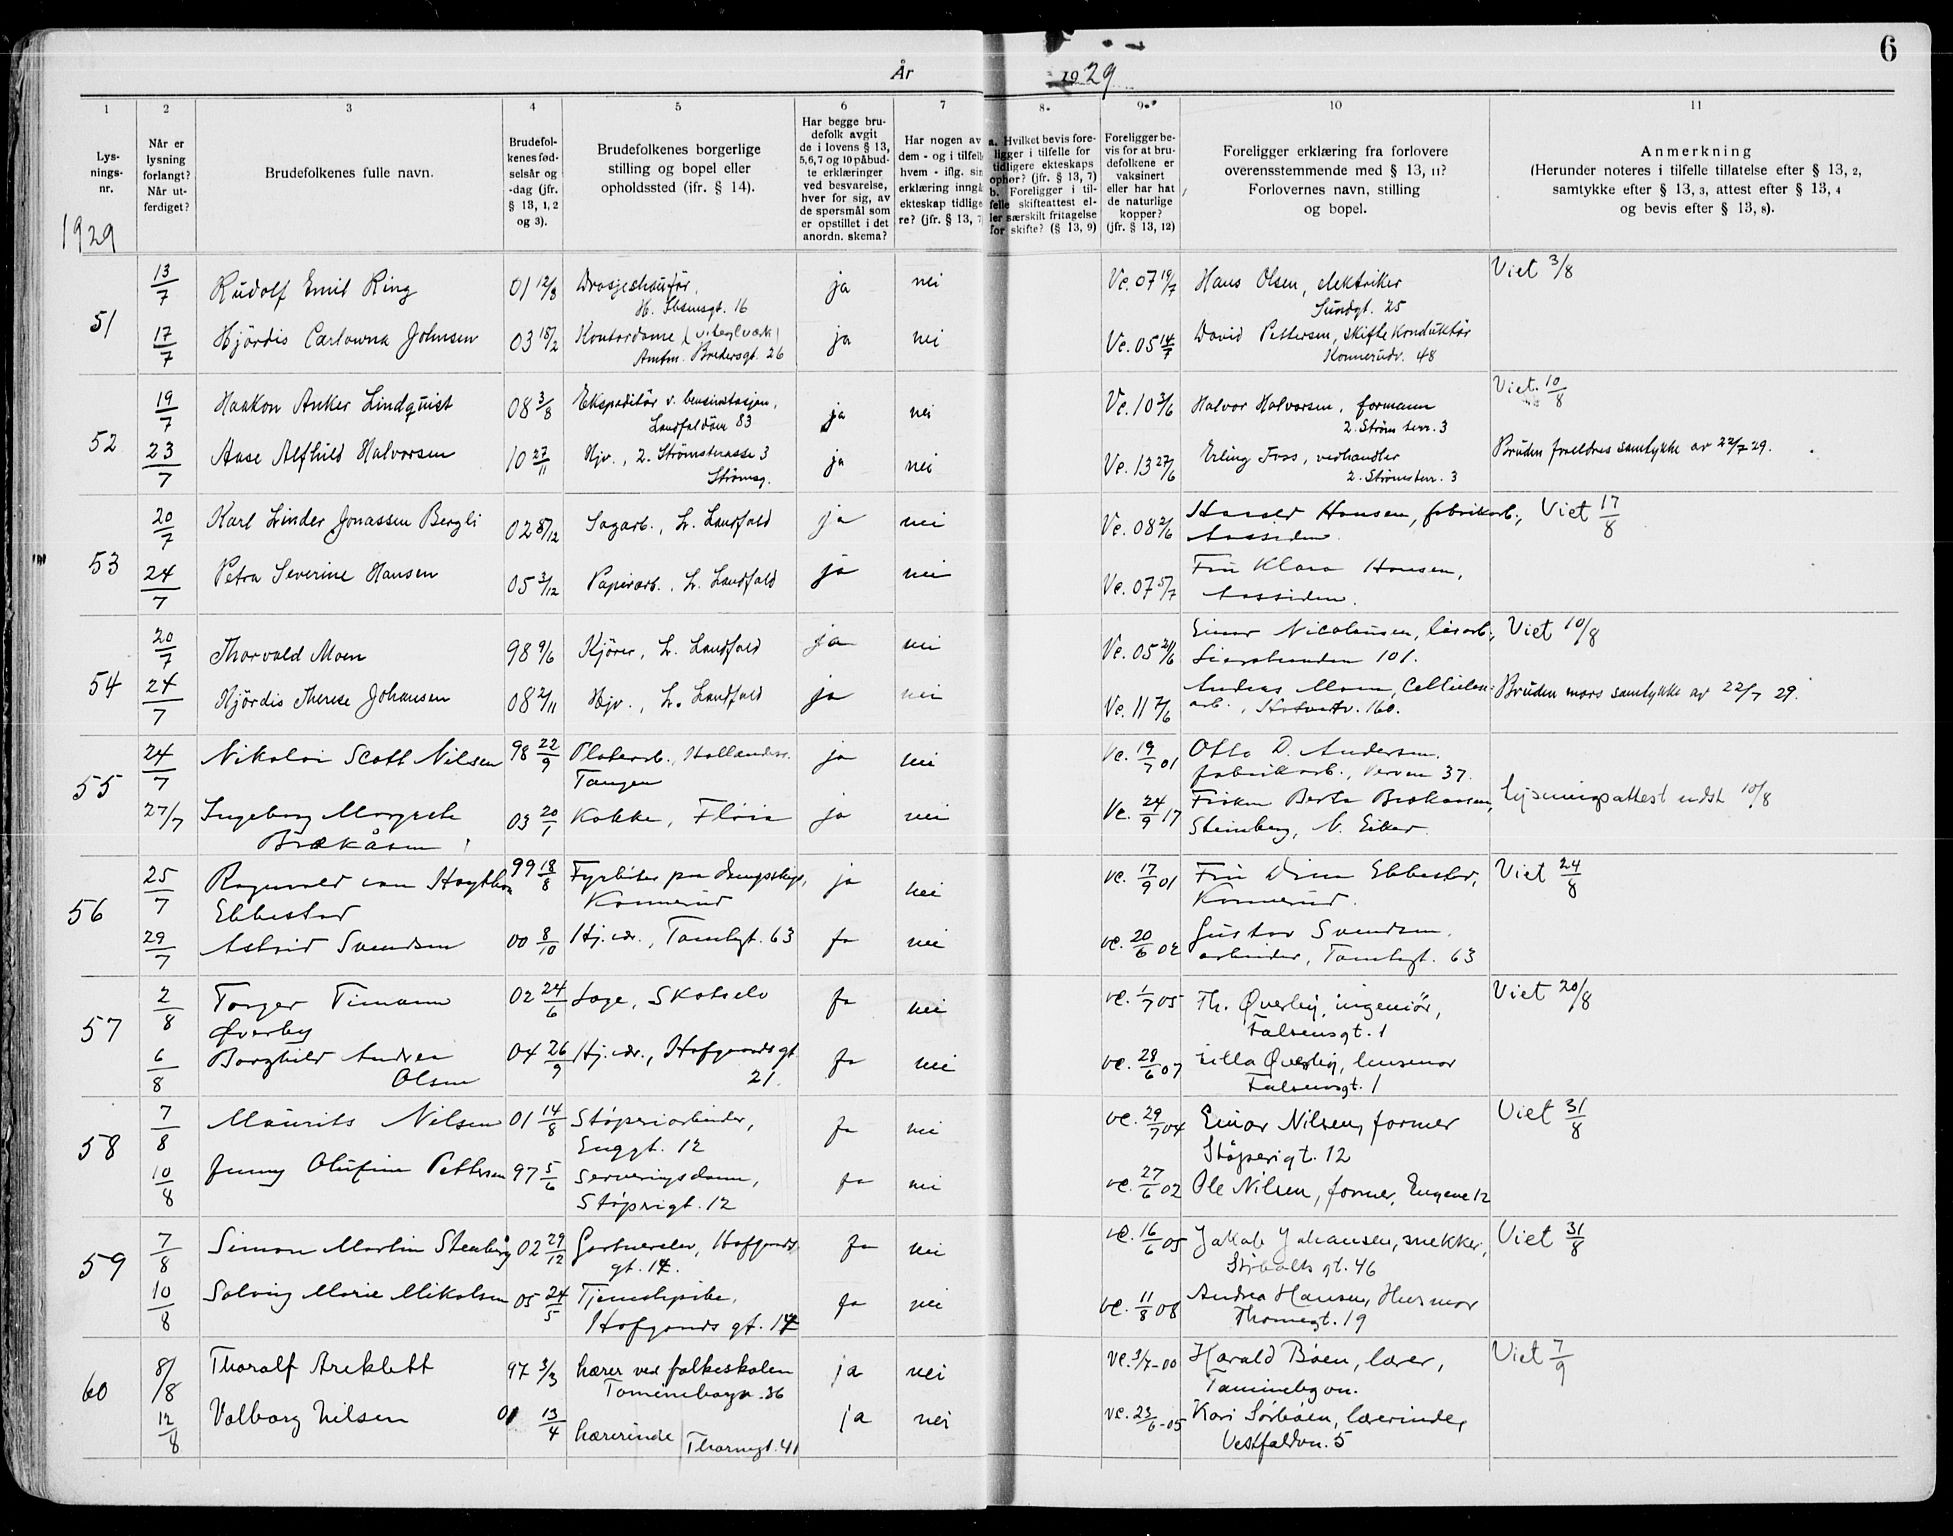 6
År 1929
1 2 3 4 5 6 7 8. 9. 10 11
Lys-
nings-
nr.
Når er
lysning
forlangt?
Når ut-
ferdiget?
Brudefolkenes fulle navn.
Brudefol-
kenes fød-
selsår og
-dag (jfr.
§ 13, 1, 2
og 3).
Brudefolkenes borgerlige
stilling og bopel eller
opholdssted (ifr. § 14).
Har begge bru-
defolk avgit
de i lovens § 13,
5,6,7 og 10 påbud-
te erklæringer
ved besvarelse,
hver for sig, av
de spørsmål som
er opstillet i det
anordn. skema?
Har nogen av
dem - og i tilfelle
hvem - iflg. sin
erklæring inngå
ekteskap tidlige
re? (jfr. § 13, 7
a. Hvilket bevis fore-
ligger i tilfelle for
tidligere ekteskaps
ophør? (jfr. § 13, 7)
b. Foreligger i til-
felle skifteattest el-
ler særskilt fritagelse
for skifte? (§ 13, 9)
Foreligger be-
vis for at bru-
defolkene er
vaksinert
eller har hat
de naturlige
kopper?
(jfr. § 13, 12)
Foreligger erklæring fra forlovere
overensstemmende med § 13, 11?
Forlovernes navn, stilling
og bopel.
Anmerkning
(Herunder noteres i tilfelle tillatelse efter § 13, 2,
samtykke efter § 13, 3, attest efter § 13, 4
og bevis efter § 13, 8).
1929
51 13/7 Rudolf Emil Ring 01 12/8 Drosjeshaufør, ja nei Vc. 07 19/7 Hans Olsen, elektriker Viet 3/8
H. Ibsensgt. 16 Sundgt. 25
17/7 Hjördis Carlowna Johnsen 03 18/2 Kontordame ja nei Vc. 05 14/7 David Pettersen, skiftekonduktör
Amtm. Bredersgt. 26 Konnerudv. 48
52 19/7 Haakon Anker Lindquist 08 3/8 Ekspeditör v. bensinstasjon, ja nei Vc. 10 3/6 Halvor Halvorsen, formann Viet. 10/8
Landfaldöen 83 2. Strøm terr. 3
23/7 Aase Alfhild Halvorsen 10 27/11 Hjv., 2. Strömsterasse 3 ja nei Vc. 13 27/6 Erling Foss, vedhandler Bruden foreldres samtykke av 22/7 29.
Strömsg. 2. Strömsterr. 3
53 20/7 Karl Linder Jonassen Bergli 02 8/12 Sagarb., L. Landfald ja nei Vc. 08 2/6 Harald Hansen, fabrikarb., Viet 17/8
Aassiden.
24/7 Petra Severine Hansen 05 3/12 Papirarb., L. Landfald ja nei Vc. 07 5/7 Fru Klara Hansen,
Aassiden.
54 20/7 Thorvald Moen 98 9/6 Kjörer, L. Landfald ja nei Vc. 05 21/6 Einar Nicolausen, løsarb., Viet 10/8
Lierstranden 101.
24/7 Hjördis Therese Johansen 08 2/11 Hjv., L. Landfald ja nei Vc. 11 7/6 Andreas Moen, Cellulose- Bruden mors samtykke av 22/7 29.
arb., 160.
55 24/7 Nikolai Scott Nilsen 98 22/9 Platearb., Hollenderg. ja nei Vc. 19/7 01 Otto D. Andersen.
Tangen fabrikarb., Verven 37.
27/7 Ingeborg Margrete 03 20/1 Kokke, Florø ja nei Vc. 24/9 17 Frøken Berta Brekåsen, Lysningsattest utst. 10/8
Brækåsen Steinberg, N. Eiker.
56 25/7 Ragnvald van Haythen 99 18/8 Fyrbøter paa dampskip, ja nei vc. 17/9 01 Fru Dina Ebbestad, Viet 24/8
Ebbestad Konnerud Konnerud.
29/7 Astrid Svendsen 00 8/10 Hj. vær., Tomtegt. 63 ja nei vc. 20/6 02 Gustav Svendsen.
arbeider, Tomtegt. 63
57 2/8 Torger Timann 02 24/6 Lage, Skotselv ja nei vc. 1/7 05 Th. Øverby, ingeniør, Viet 20/8
Øverby Falsensgt. 1
6/8 Borghild Andrea 04 26/9 Hj. vær., Hofgaards gt. ja nei vc. 28/6 07 Lilla Øverby, husmor
Olsen 21. Falsensgt. 1
58 7/8 Maurits Nilsen 01 14/8 Støperiarbeider, ja nei vc. 29/7 04 Einar Nilsen, former Viet 31/8
Enggt. 12 Støperigt. 12
10/8 Jenny Olufine Pettersen 97 5/6 Serveringsdame, ja nei vc. 27/6 02 Ole Nilsen, former, Engene 12
Støperigt. 12
59 7/8 Simon Martin Stenberg 02 29/12 Gartnerelev, Hofgaards ja nei vc. 16/6 05 Jakob Johansen, snekker, Viet 31/8
gt. 14. gt. 46
10/8 Solveig Marie Mikalsen 05 24/5 Tjenestepike, ja nei vc. 11/8 08 Andrea Hansen, Husmor
Hofgaards gt. 14 Thornegt. 19
60 8/8 Tharalf Areklett 97 3/3 Lærer ved folkeskolen ja nei vc. 3/7-00 Harald Bøen, lærer, Viet 7/9
36
12/8 Valborg Nilsen 01 13/4 Lærerinde ja nei vc. 23/6-05 Kari Sörböen, lærerinde,
Thornegt. 41 Vestfoldvn. 5